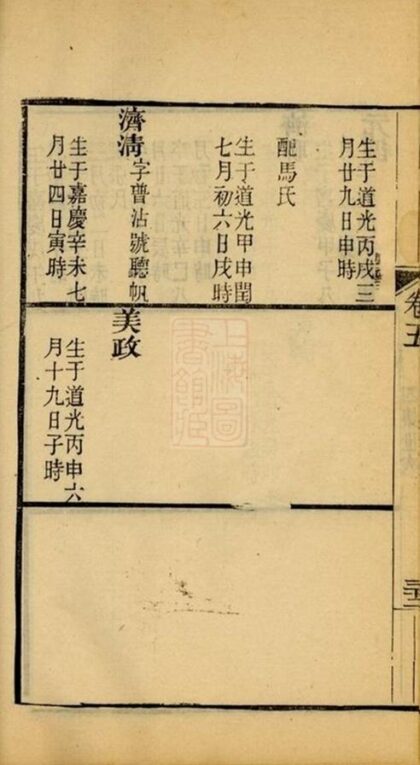 卷五
生于道光丙戌三
月廿九日申時
配馬氏
生于道光甲申閏
七月初六日戌時
濟清 字曹沾號聽帆
生于嘉慶辛未七
月廿四日寅時
美政
生于道光丙申六
月十九日子時
上海圖
書館藏